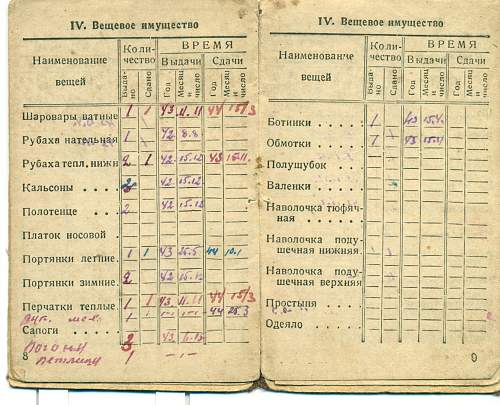 IV. Вещевое имущество
Наименование вещей
Коли-чество
ВРЕМЯ
Выдачи
Сдачи
Выда-но
Сдано
Год
Месяц и число
Год
Месяц и число
Шаровары ватные 1 1 43 11.11 44 15/3
Рубаха нательная 1 42 8.8
Рубаха тепл. нижн 2 1 42 15.12 43 15.11.
Кальсоны . . . . 2 42 15.12
Полотенце . . . 2 42 15.12
Платок носовой .
Портянки летние. 1 1 43 25.5 44 10.1
Портянки зимние. 2 42 15.12
Перчатки теплые. 1 1 43 11.11 44 15/3
1 1 -"- -"- 44 25.3
Сапоги . . . . . 43
Погоны 3
петлицы 1 -"-
8
IV. Вещевое имущество
Наименование вещей
Коли-чество
ВРЕМЯ
Выдачи
Сдачи
Выда-но
Сдано
Год
Месяц и число
Год
Месяц и число
Ботинки . . . . 1 43 15.4.
Обмотки . . . . 1 43 15.4
Полушубок . .
Валенки . . . .
Наволочка тюфяч-
ная . . . . . .
Наволочка поду-
шечная нижняя.
Наволочка поду-
шечная верхняя
Простыня . . .
Одеяло . . . . .
9